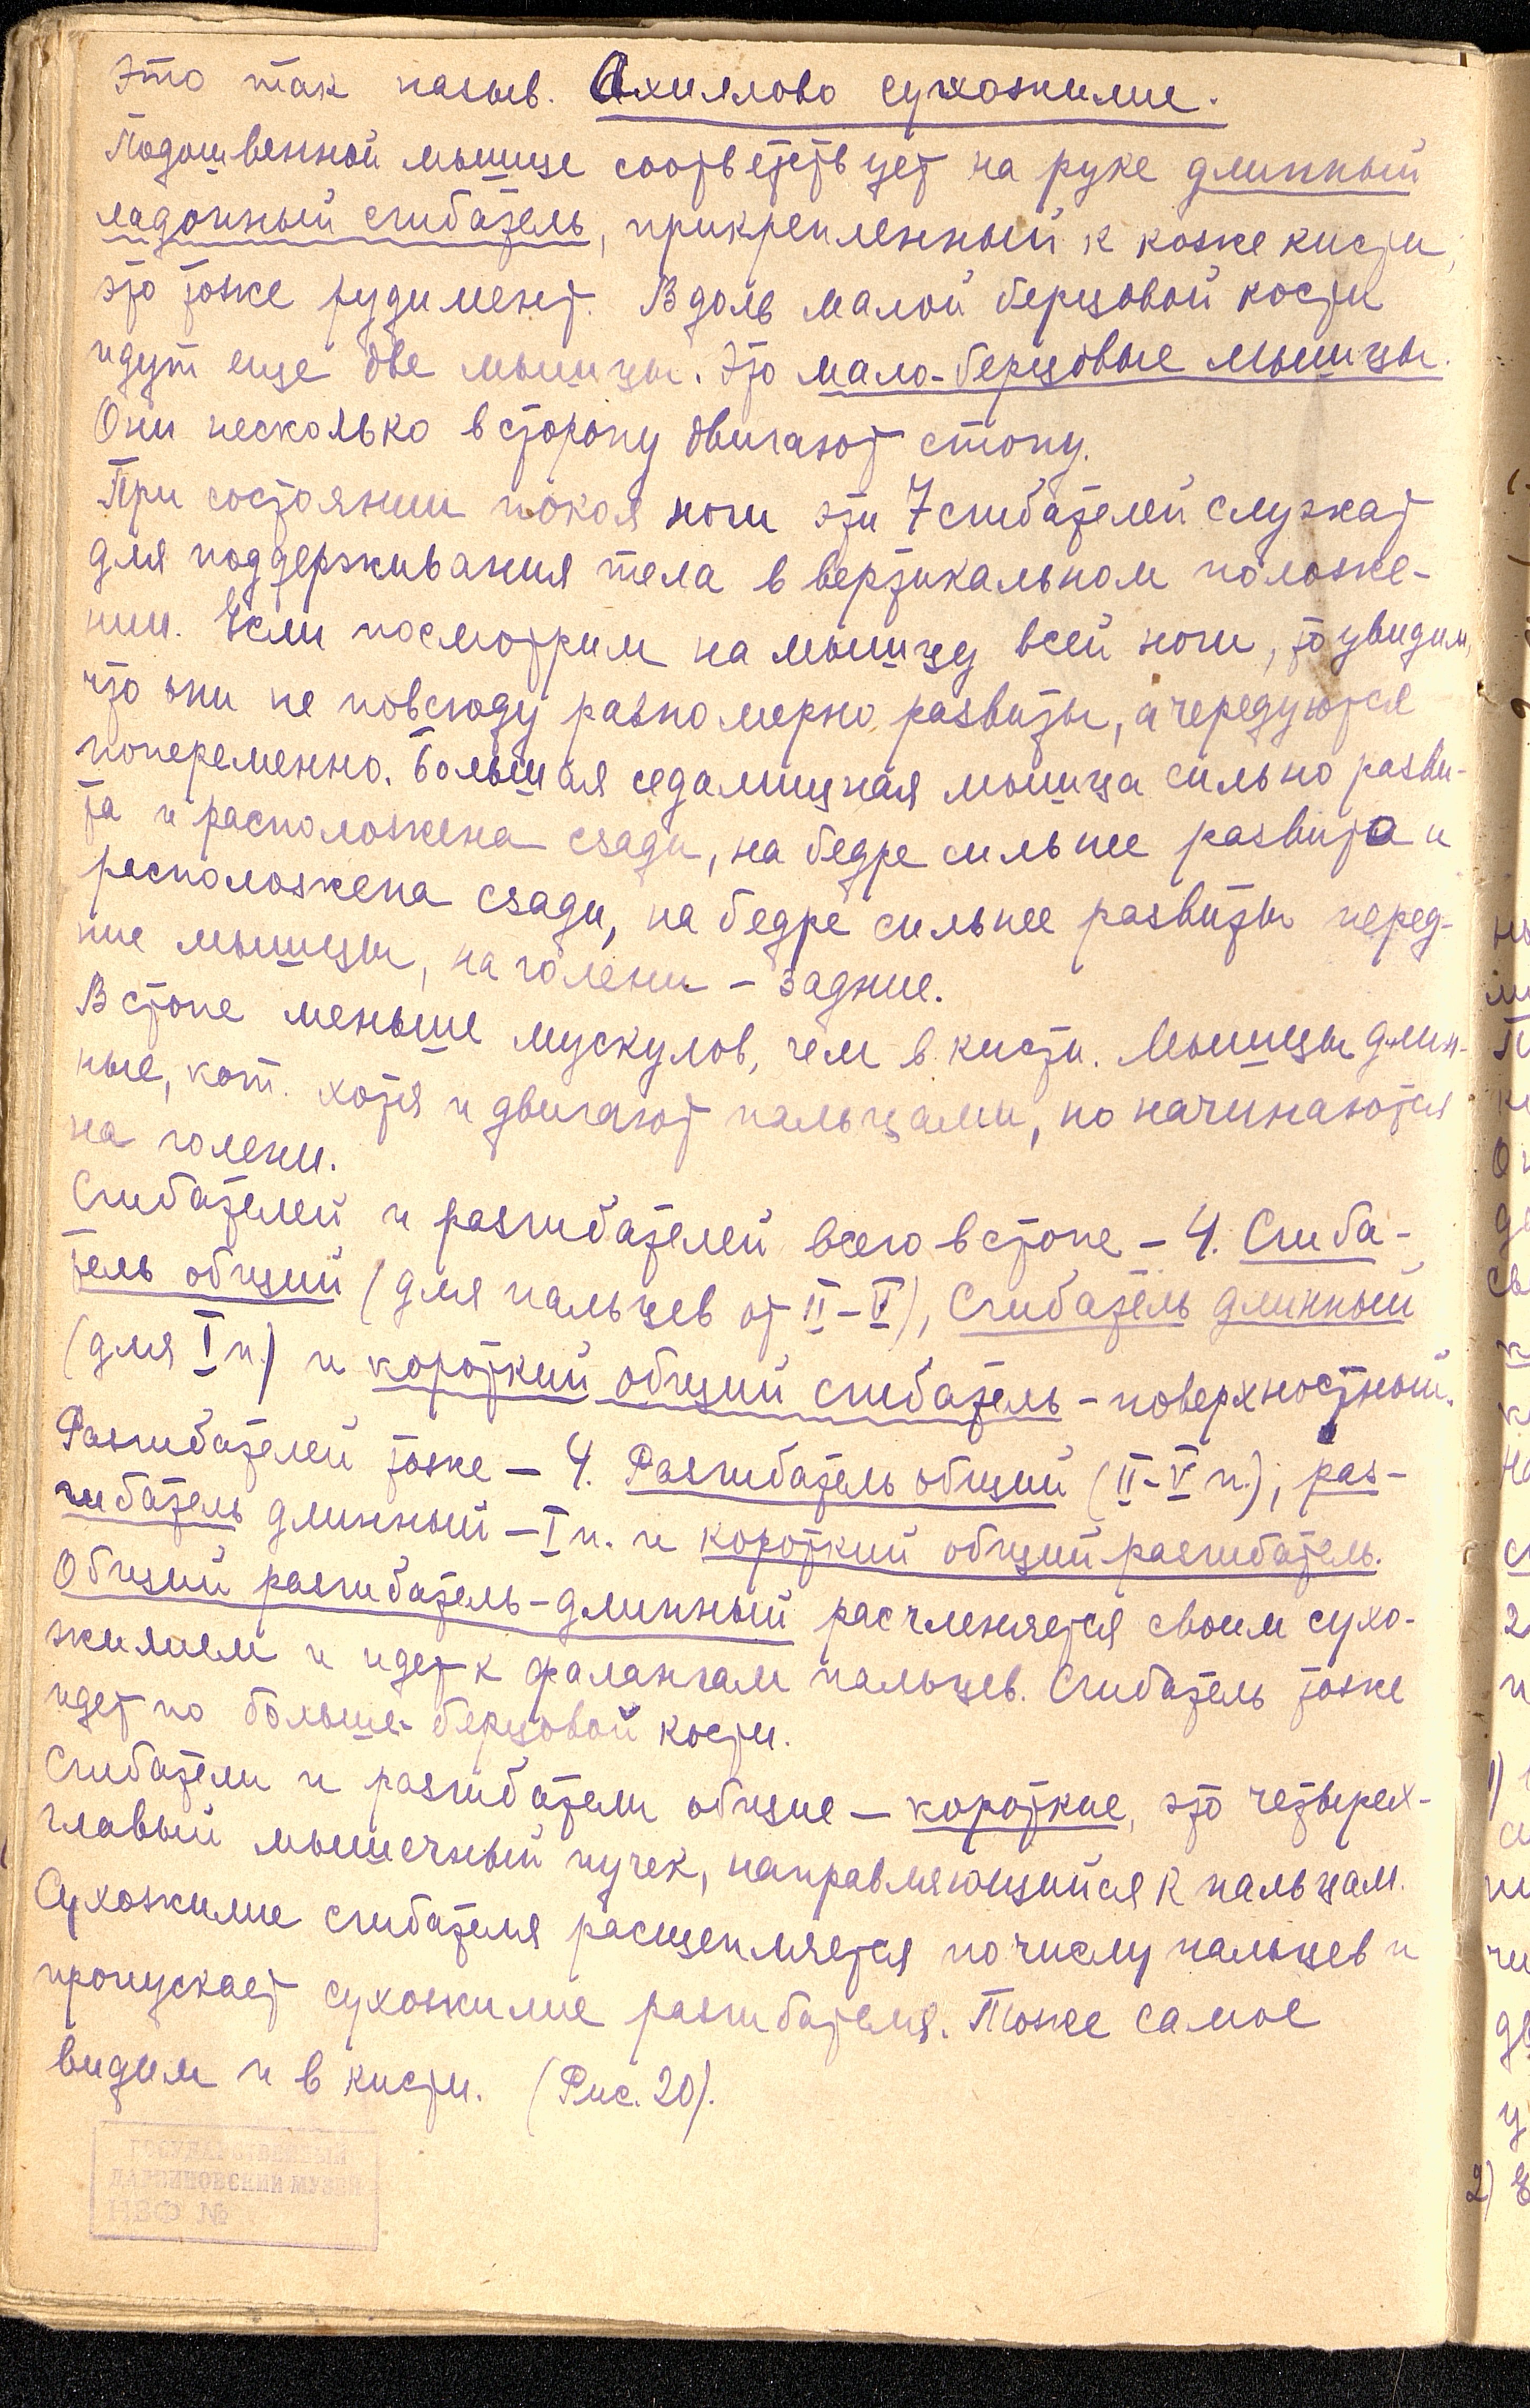 это так назыв. Ахиллово сухожилие.
Подошвенной мышце соответствует на руке длинный
ладонный сгибатель, прикрепленный к коже кисти,
это тоже рудимент. Вдоль малой берцовой кости
идут еще две мышцы. Это мало-берцовые мышцы.
Они несколько в сторону двигают стопу.
При состоянии покоя ноги эти 7 сгибателей служат
для поддерживания тела в вертикальном положе-
нии. Если посмотрим на мышцу всей ноги, то увидим,
что они не повсюду равномерно развиты, а чередуются
попеременно. Большая седалищная мышца сильно разви-
та и расположена сзади, на бедре сильнее развита и
расположена сзади, на бедре сильнее развиты перед-
ние мышцы, на голени – задние.
В стопе меньше мускулов, чем в кисти. Мышцы длин-
ные, кот. хотя и двигают пальцами, но начинаются
на голени.
Сгибателей и разгибателей всего в стопе – 4. Сгиба-
тель общий (для пальцев от II – V), Сгибатель длинный
(для I п.) и короткий общий сгибатель – поверхностный.
Разгибателей тоже – 4. Разгибатель общий (II – V п.), раз-
гибатель длинный – I п. и короткий общий разгибатель.
Общий разгибатель – длинный расчленяется своим сухо-
жилием и идет к фалангам пальцев. Сгибатель тоже
идет по больше-берцовой кости.
Сгибатели и разгибатели общие – короткие, это четырех-
главый мышечный пучек, направляющийся к пальцам.
Сухожилие сгибателя расщепляется по числу пальцев и
пропускает сухожилие разгибателя. Тоже самое
видим и в кисти. (Рис. 20).
ГОСУДАРСТВЕННЫЙ
ДАРВИНОВСКИЙ МУЗЕЙ
НВФ №